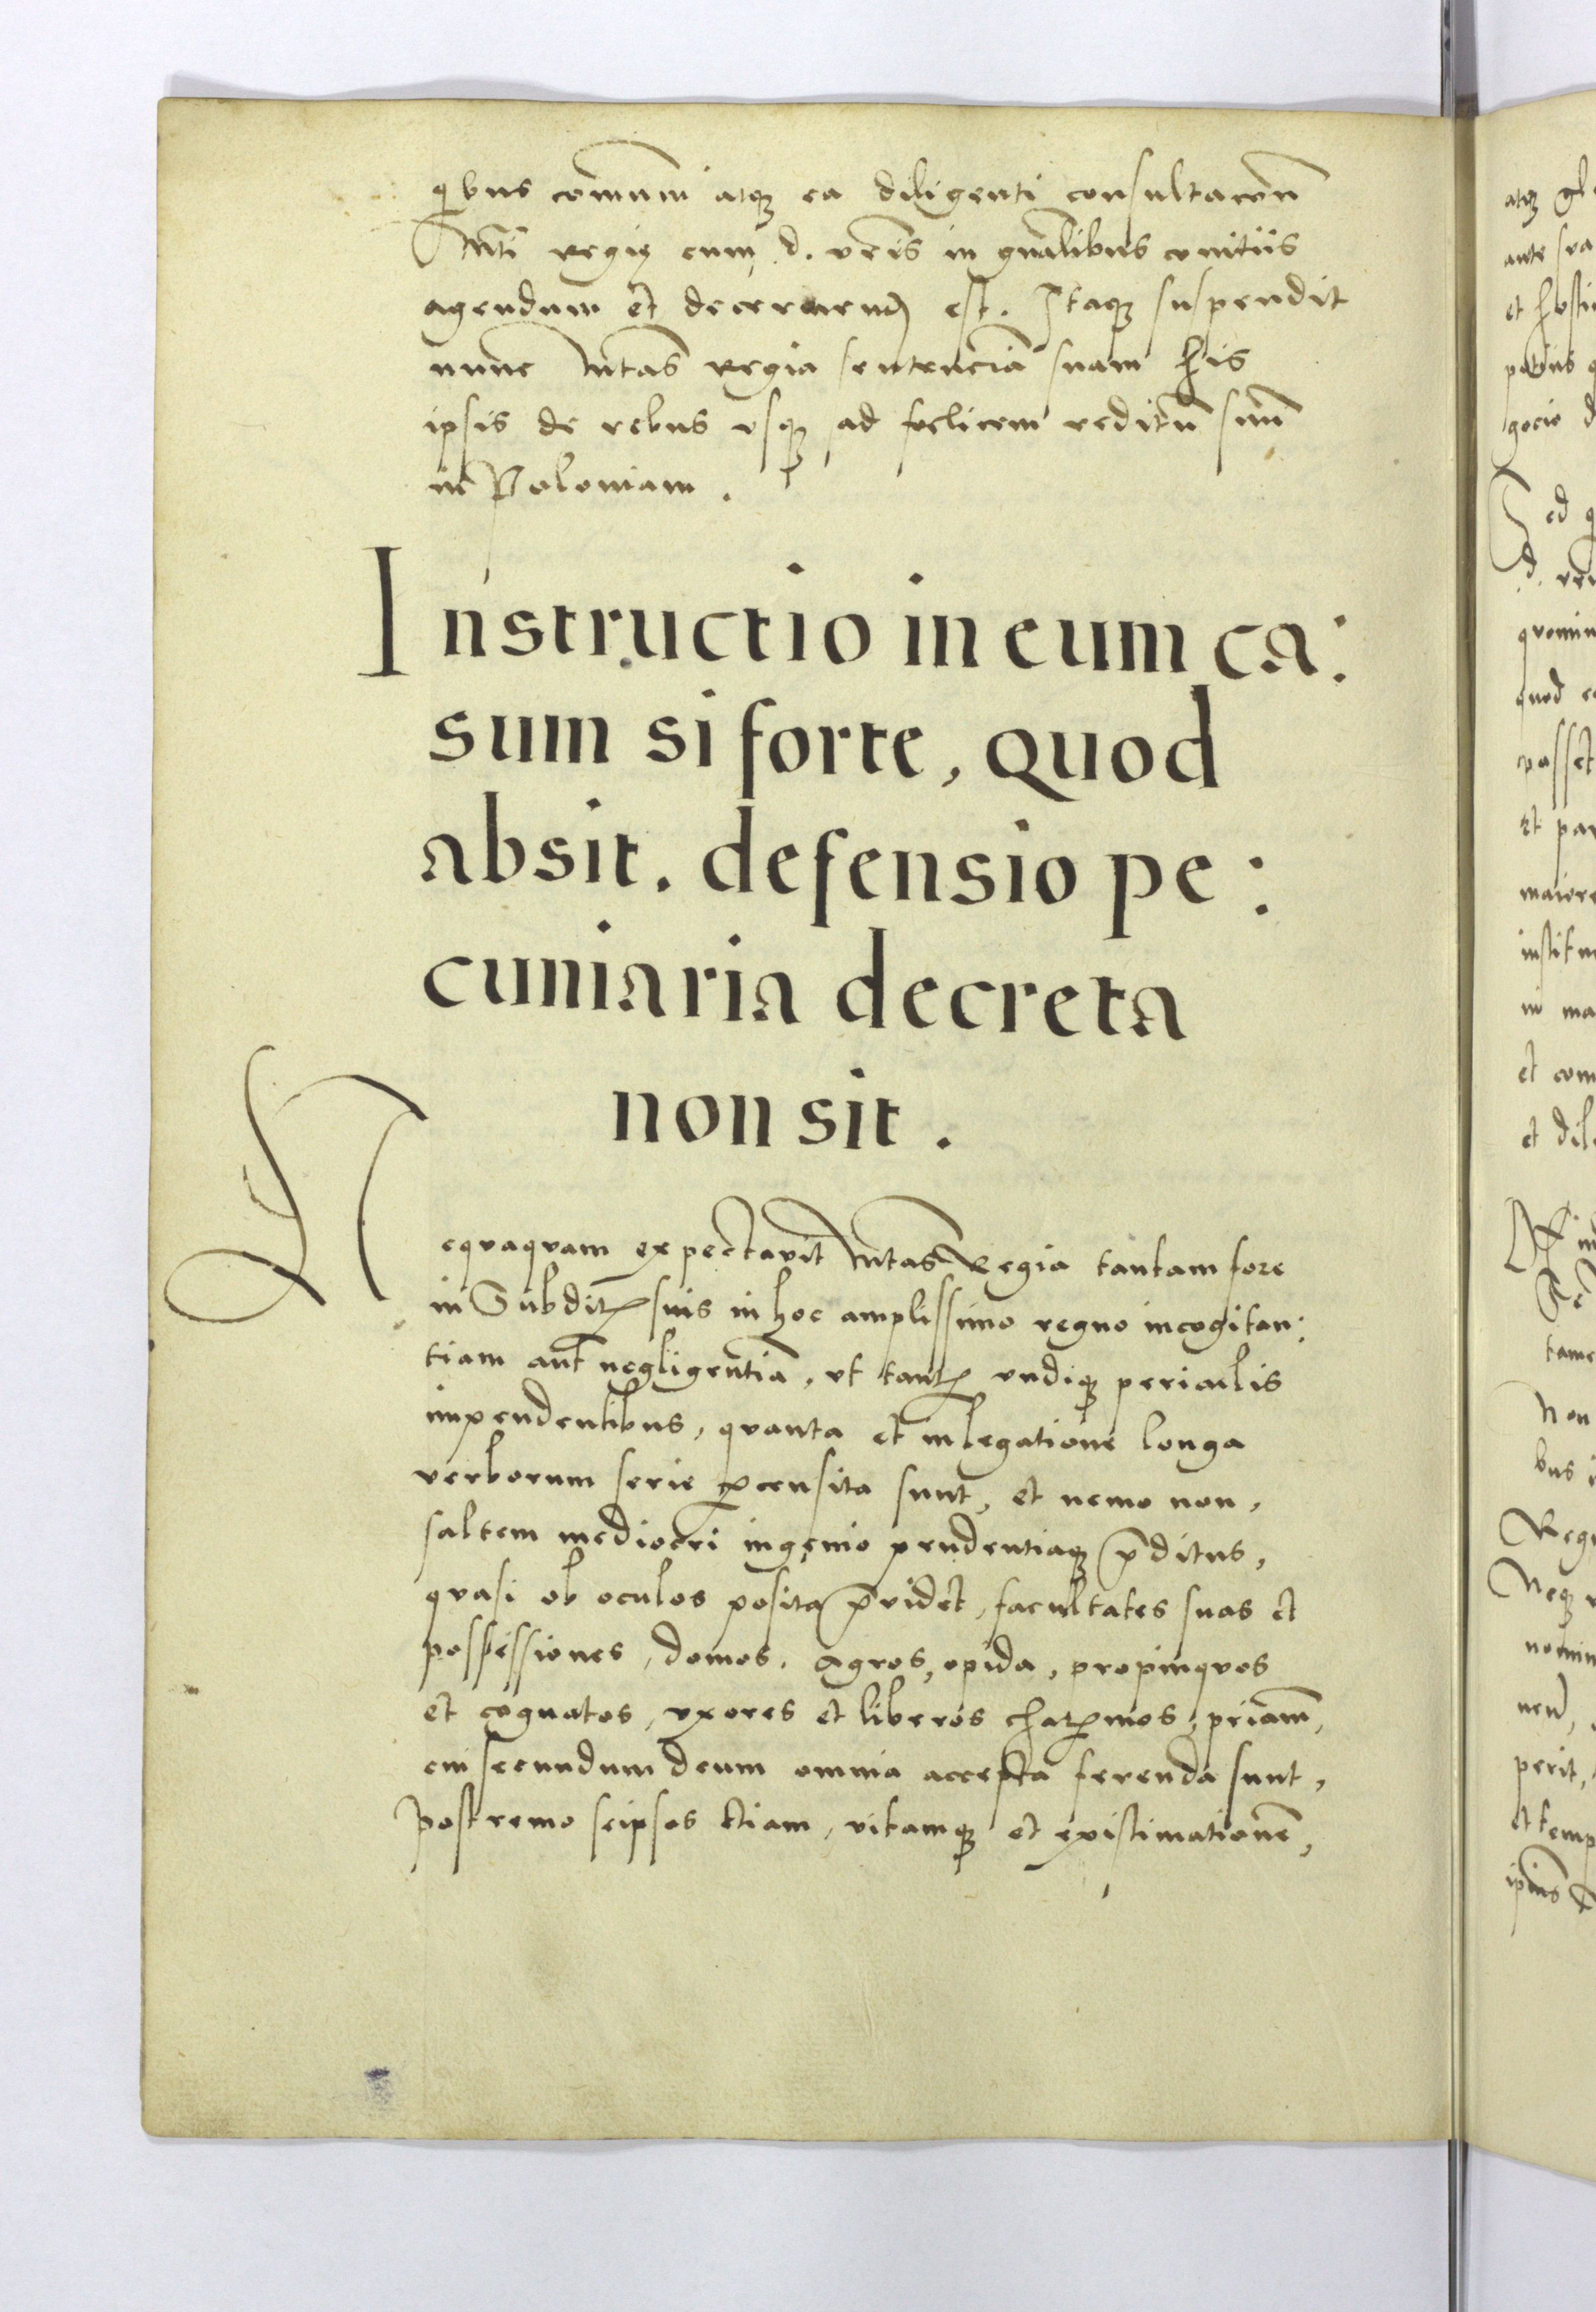 qbus comuni atq₃ ea diligenti consultacōn
Mti regię cum d. vr̄is in gnālibus comitiis
agendum et decernend est. Itaq₃ suspendit
nunc Mtas regia sentenciā suam his
ipsis de rebus vsq₃ ad foelicem reditū suū
in Poloniam.
Instructio in eum ca:
sum si forte, quod
absit. defensio pe:
cuniaria decreta
non sit.
Nequaquam expectavit Mtas Regia tantam fore
in Subditꝭ suis in hoc amplissimo regno incogitan:
tiam aut negligentiā, vt tantꝭ vndiq₃ periculis
impendentibus, quanta et in legatione longa
verborum serie ꝑcensita sunt, et nemo non,
saltem mediocri ingenio prudentiaq₃ p̄ditus,
quasi ob oculos posita p̄videt, facultates suas et
possessiones, domos, agros, opida, propinquos
et cognatos, vxores et liberos charꝭmos, pr̄iam,
cui secundum deum omnia accepta ferenda sunt,
postremo seipsos etiam, vitamq₃ et existimationē,
atq₃
ante
et
potius
gocio
Sed
d.
quomin
quod
passet
et
maiore
institu
in ma
et com
et dil
tame
Non
bus
Regn
Neq₃
nomin
perit,
et temp
ipsius